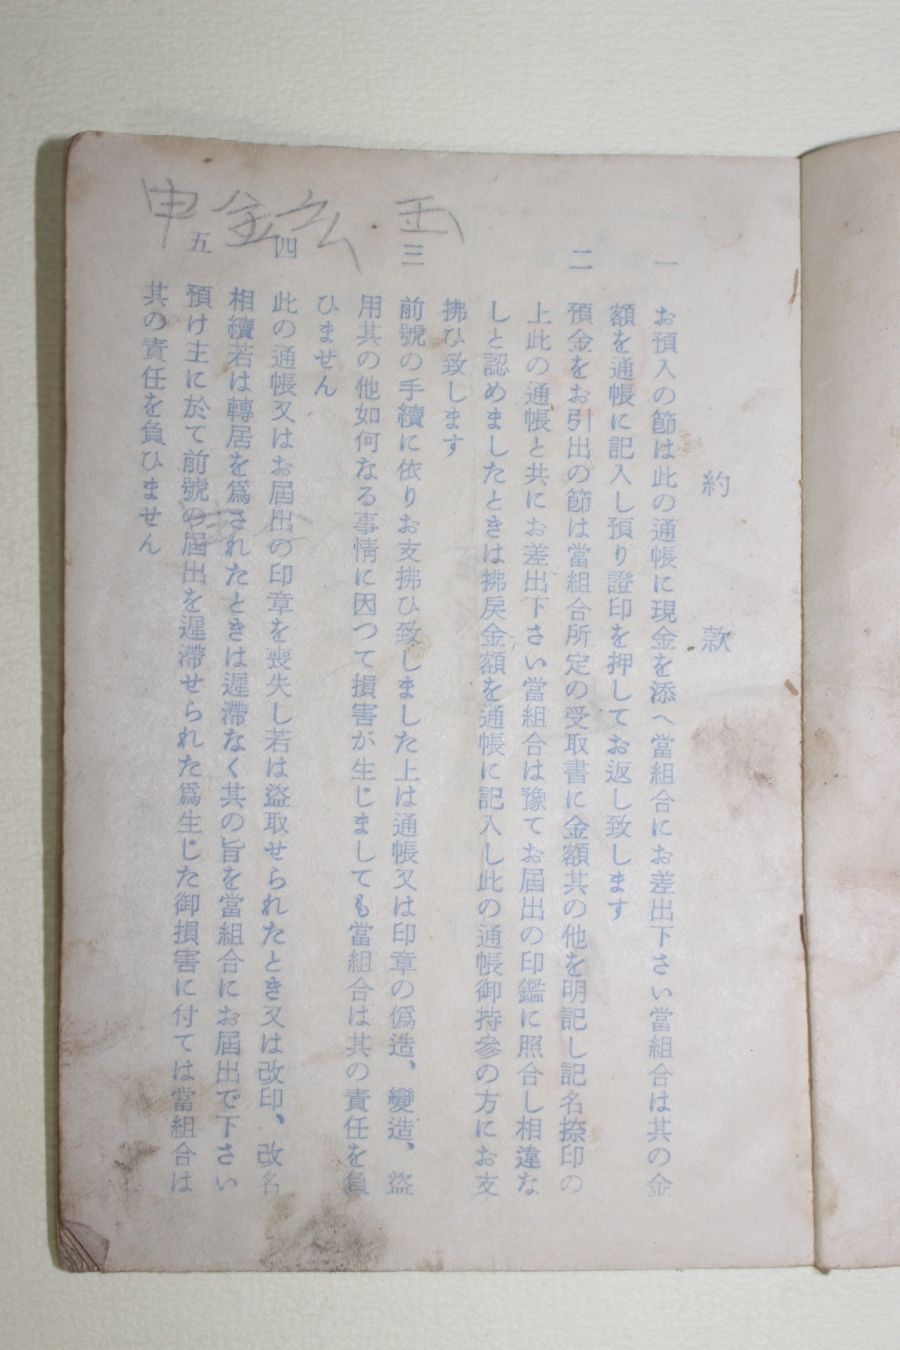 約款
一
お預入の節は此の通帳に現金を添へ當組合にお差出下さい當組合は其の金
額を通帳に記入し預り證印を押してお返し致します
二
預金をお引出の節は當組合所定の受取書に金額其の他を明記し記名捺印の
上此の通帳と共にお差出下さい當組合は豫てお屆出の印鑑に照合し相違な
しと認めましたときは拂戻金額を通帳に記入し此の通帳御持參の方にお支
拂ひ致します
三
前號の手續に依りお支拂ひ致しました上は通帳又は印章の僞造、變造、盜
用其の他如何なる事情に因つて損害が生じましても當組合は其の責任を負
ひません
四
此の通帳又はお屆出の印章を喪失し若は盜取せられたとき又は改印、改名
相續若は轉居を爲されたときは遲滯なく其の旨を當組合にお屆出で下さい
五
預け主に於て前號の屆出を遲滯せられた爲生じた御損害に付ては當組合は
其の責任を負ひません